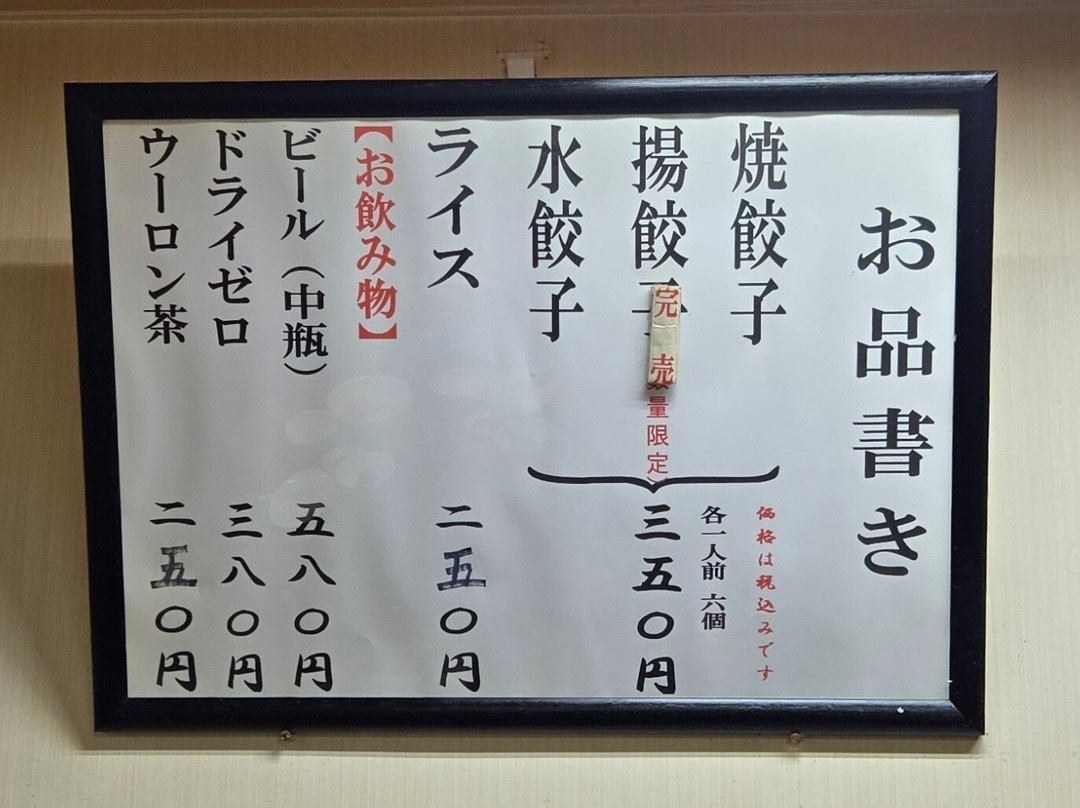 お品書き
焼餃子
揚餃子
完売
数量限定）
水餃子
価格は税込みです
各一人前 六個
三五〇円
ライス 二五〇円
【お飲み物】
ビール（中瓶） 五八〇円
ドライゼロ 三八〇円
ウーロン茶 二五〇円